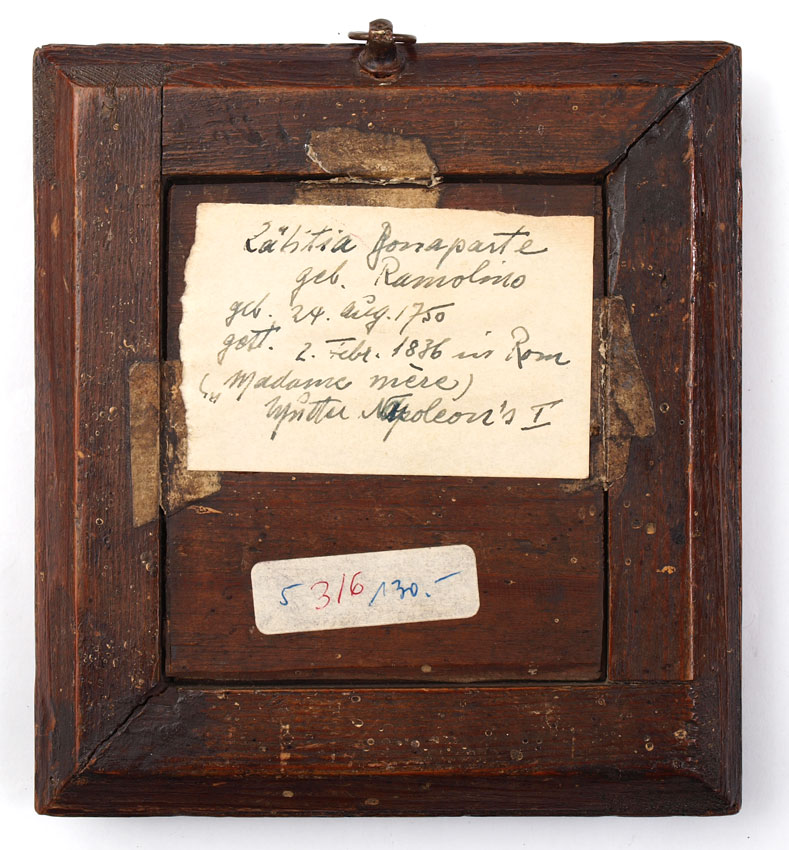 Lätitia Bonaparte
geb. Ramolino
geb. 24. Aug. 1750
gest. 2. Febr. 1836 in Rom
("Madame mère)
Mutter Napoleon's I
5 316 130.-